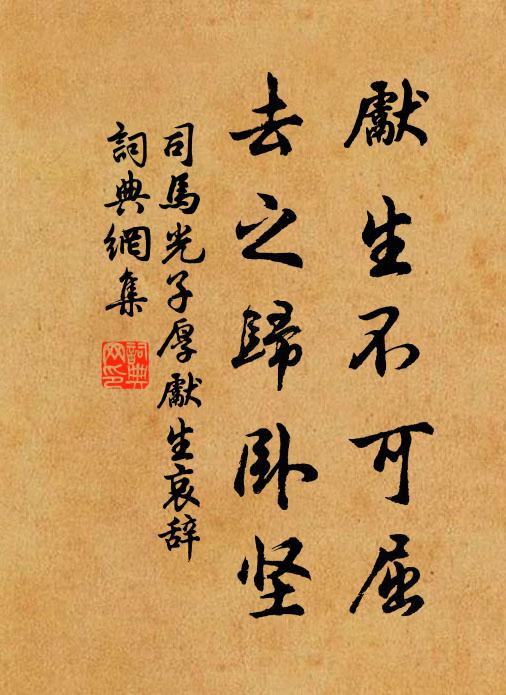 獻生不可屈
去之歸卧坚
司馬光子厚獻生哀辞
詞典網集
詞典網印